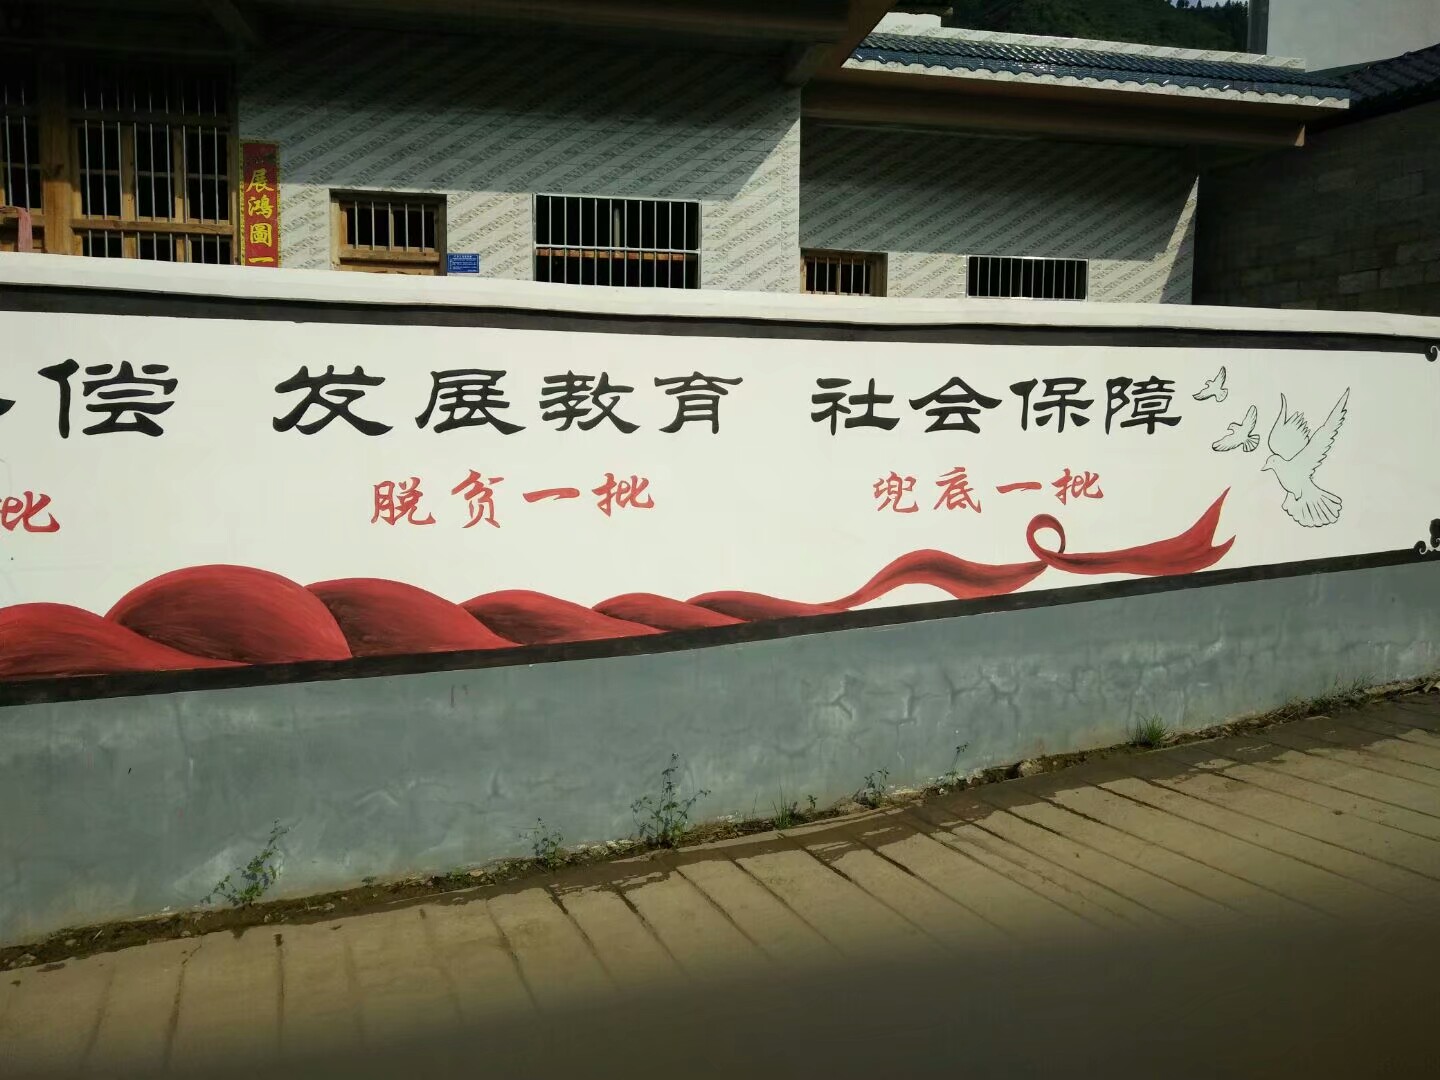 展鸿圖一
偿 发展教育 社会保障
批 脱贫一批 兜底一批